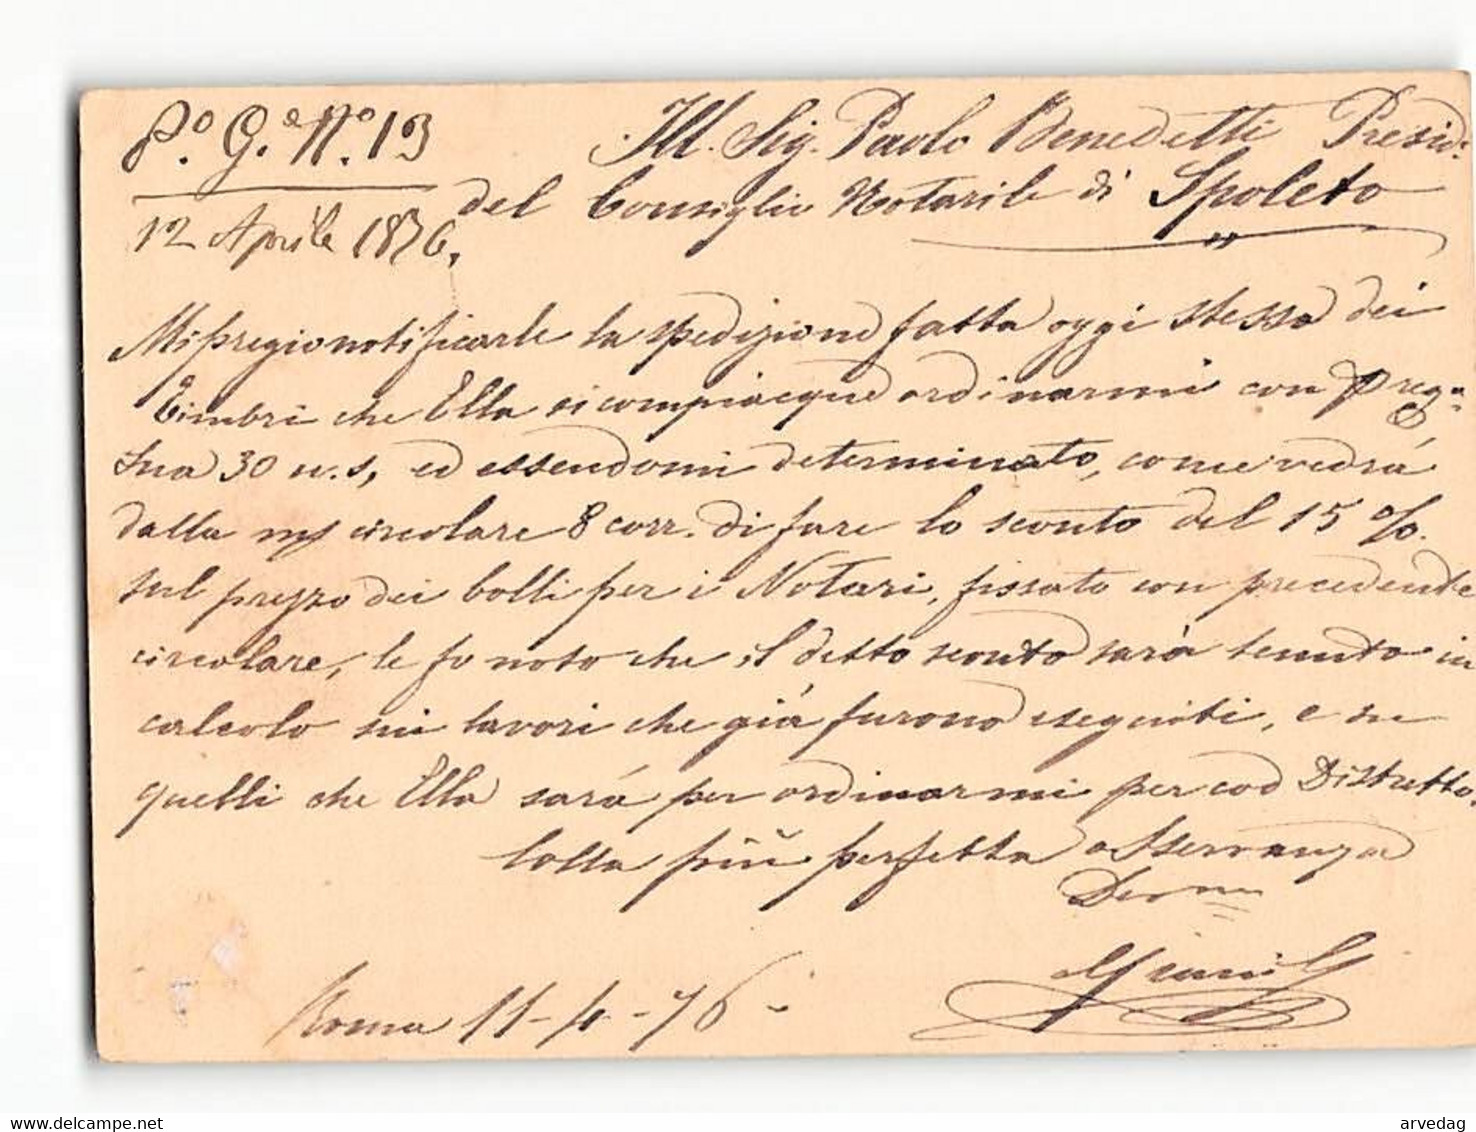 P.º G.e N.º 13
12 Aprile 1876.
Ill. Sig. Paolo Benedetti Presid.
del Consiglio Notarile di Spoleto
Mi pregio notificarle la spedizione fatta oggi stesso dei
timbri che Ella si compiacque ordinarmi con preg.a
sua 30 u.s, ed essendomi determinato, come vedrá
dalla circolare 8 corr. di fare lo sconto del 15 %.
sul prezzo dei bolli per i Notari, fissato con precedente
circolare, le fo noto che il detto sconto sarà tenuto in
calcolo sui lavori che giá furono eseguiti, e su
quelli che Ella sará per ordinarmi per cod Distretto.
Colla più perfetta osservanza
Roma 11-4-76
delcampe.net
arvedag